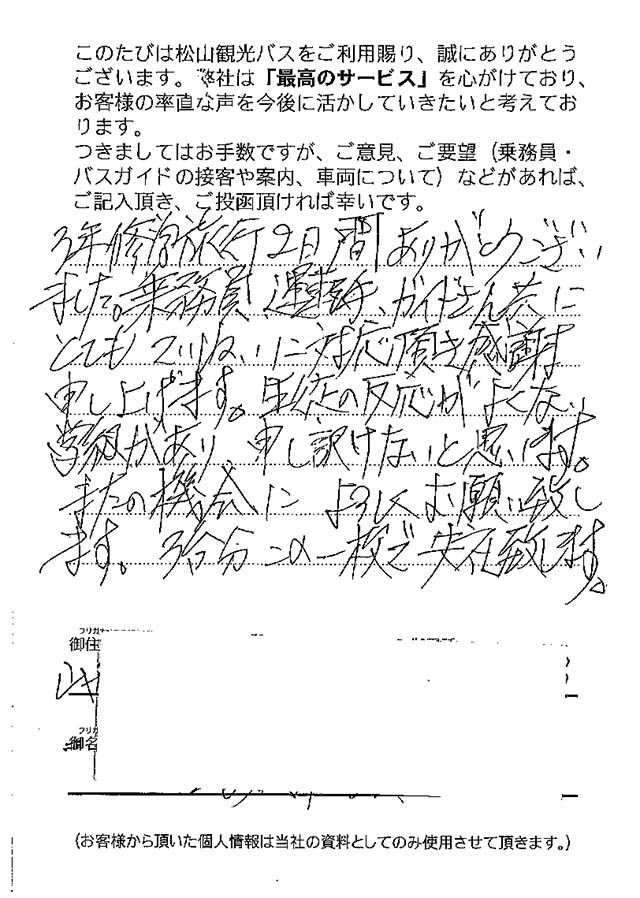 このたびは松山観光バスをご利用賜り、誠にありがとう
ございます。弊社は「最高のサービス」を心がけており、
お客様の率直な声を今後に活かしていきたいと考えてお
ります。
つきましてはお手数ですが、ご意見、ご要望（乗務員・
バスガイドの接客や案内、車両について）などがあれば、
ご記入頂き、ご投函頂ければ幸いです。
3年修学旅行2日間ありがとうござい
ました。乗務員、運転手、ガイドさん共に
とてもていねいに対応頂き感謝
申し上げます。生徒の反応がよくない
学級があり、申し訳けないと思います。
またの機会によろしくお願い致し
ます。3台分この一枚で失礼致します。
フリガ
御住
フリガ
御名
（お客様から頂いた個人情報は当社の資料としてのみ使用させて頂きます。）